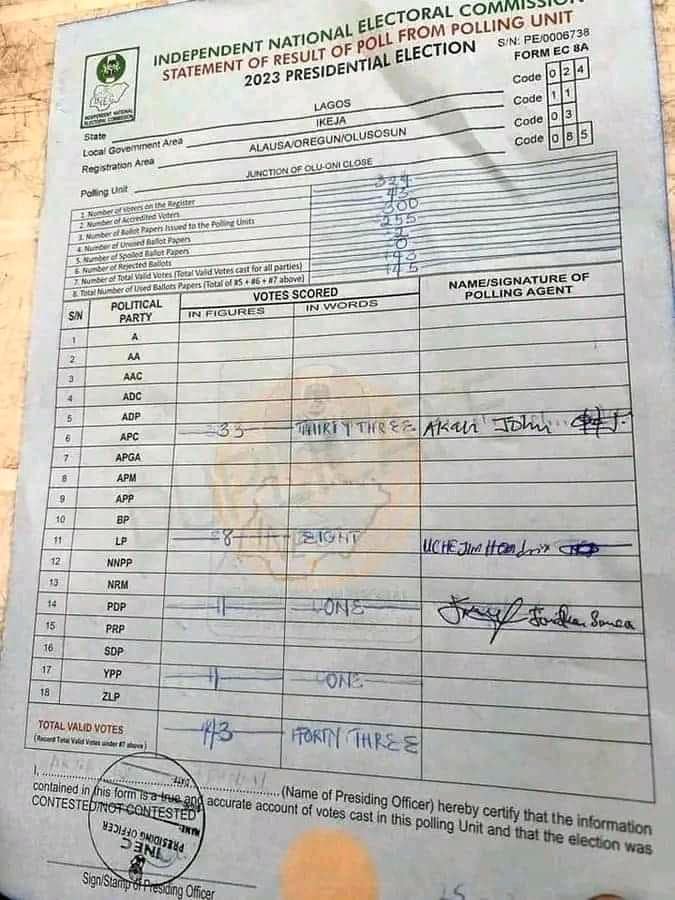 INDEPENDENT NATIONAL ELECTORAL COMMISSION
STATEMENT OF RESULT OF POLL FROM POLLING UNIT
2023 PRESIDENTIAL ELECTION
S/N: PE/0006738
FORM EC 8A
INEC
INDEPENDENT NATIONAL ELECTORAL COMMISSION
State LAGOS Code 0 2 4
Local Government Area IKEJA Code 1 1
Registration Area ALAUSA/OREGUN/OLUSOSUN Code 0 3
Polling Unit JUNCTION OF OLU-ONI CLOSE Code 0 8 5
1. Number of Voters on the Register 324
2. Number of Accredited Voters 45
3. Number of Ballot Papers Issued to the Polling Units 300
4. Number of Unused Ballot Papers 255
5. Number of Spoiled Ballot Papers 2
6. Number of Rejected Ballots 0
7. Number of Total Valid Votes (Total Valid Votes cast for all parties) 43
8. Total Number of Used Ballots Papers (Total of #5 + #6 + #7 above) 45
S/N POLITICAL PARTY VOTES SCORED NAME/SIGNATURE OF POLLING AGENT
IN FIGURES IN WORDS
1 A
2 AA
3 AAC
4 ADC
5 ADP
6 APC 33 THIRTY THREE Akari John
7 APGA
8 APM
9 APP
10 BP
11 LP 8 EIGHT UCHE JIM Hendrix
12 NNPP
13 NRM
14 PDP 1 ONE
15 PRP
16 SDP
17 YPP 1 ONE
18 ZLP
TOTAL VALID VOTES 43 FORTY THREE
(Record Total Valid Votes under #7 above)
I, (Name of Presiding Officer) hereby certify that the information
contained in this form is a true and accurate account of votes cast in this polling Unit and that the election was
CONTESTED/NOT CONTESTED
DATE
NAME:
PRESIDING OFFICER
INEC
Sign/Stamp of Presiding Officer